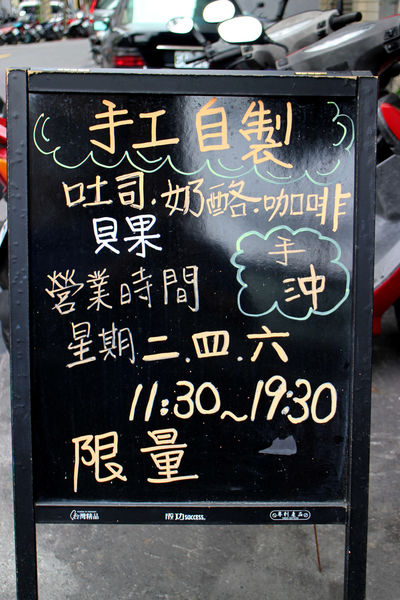 手工自製
吐司.奶酪.咖啡
貝果
手
沖
營業時間
星期二.四.六
11:30~19:30
限量
台灣精品
成功SUCCESS.
專利產品